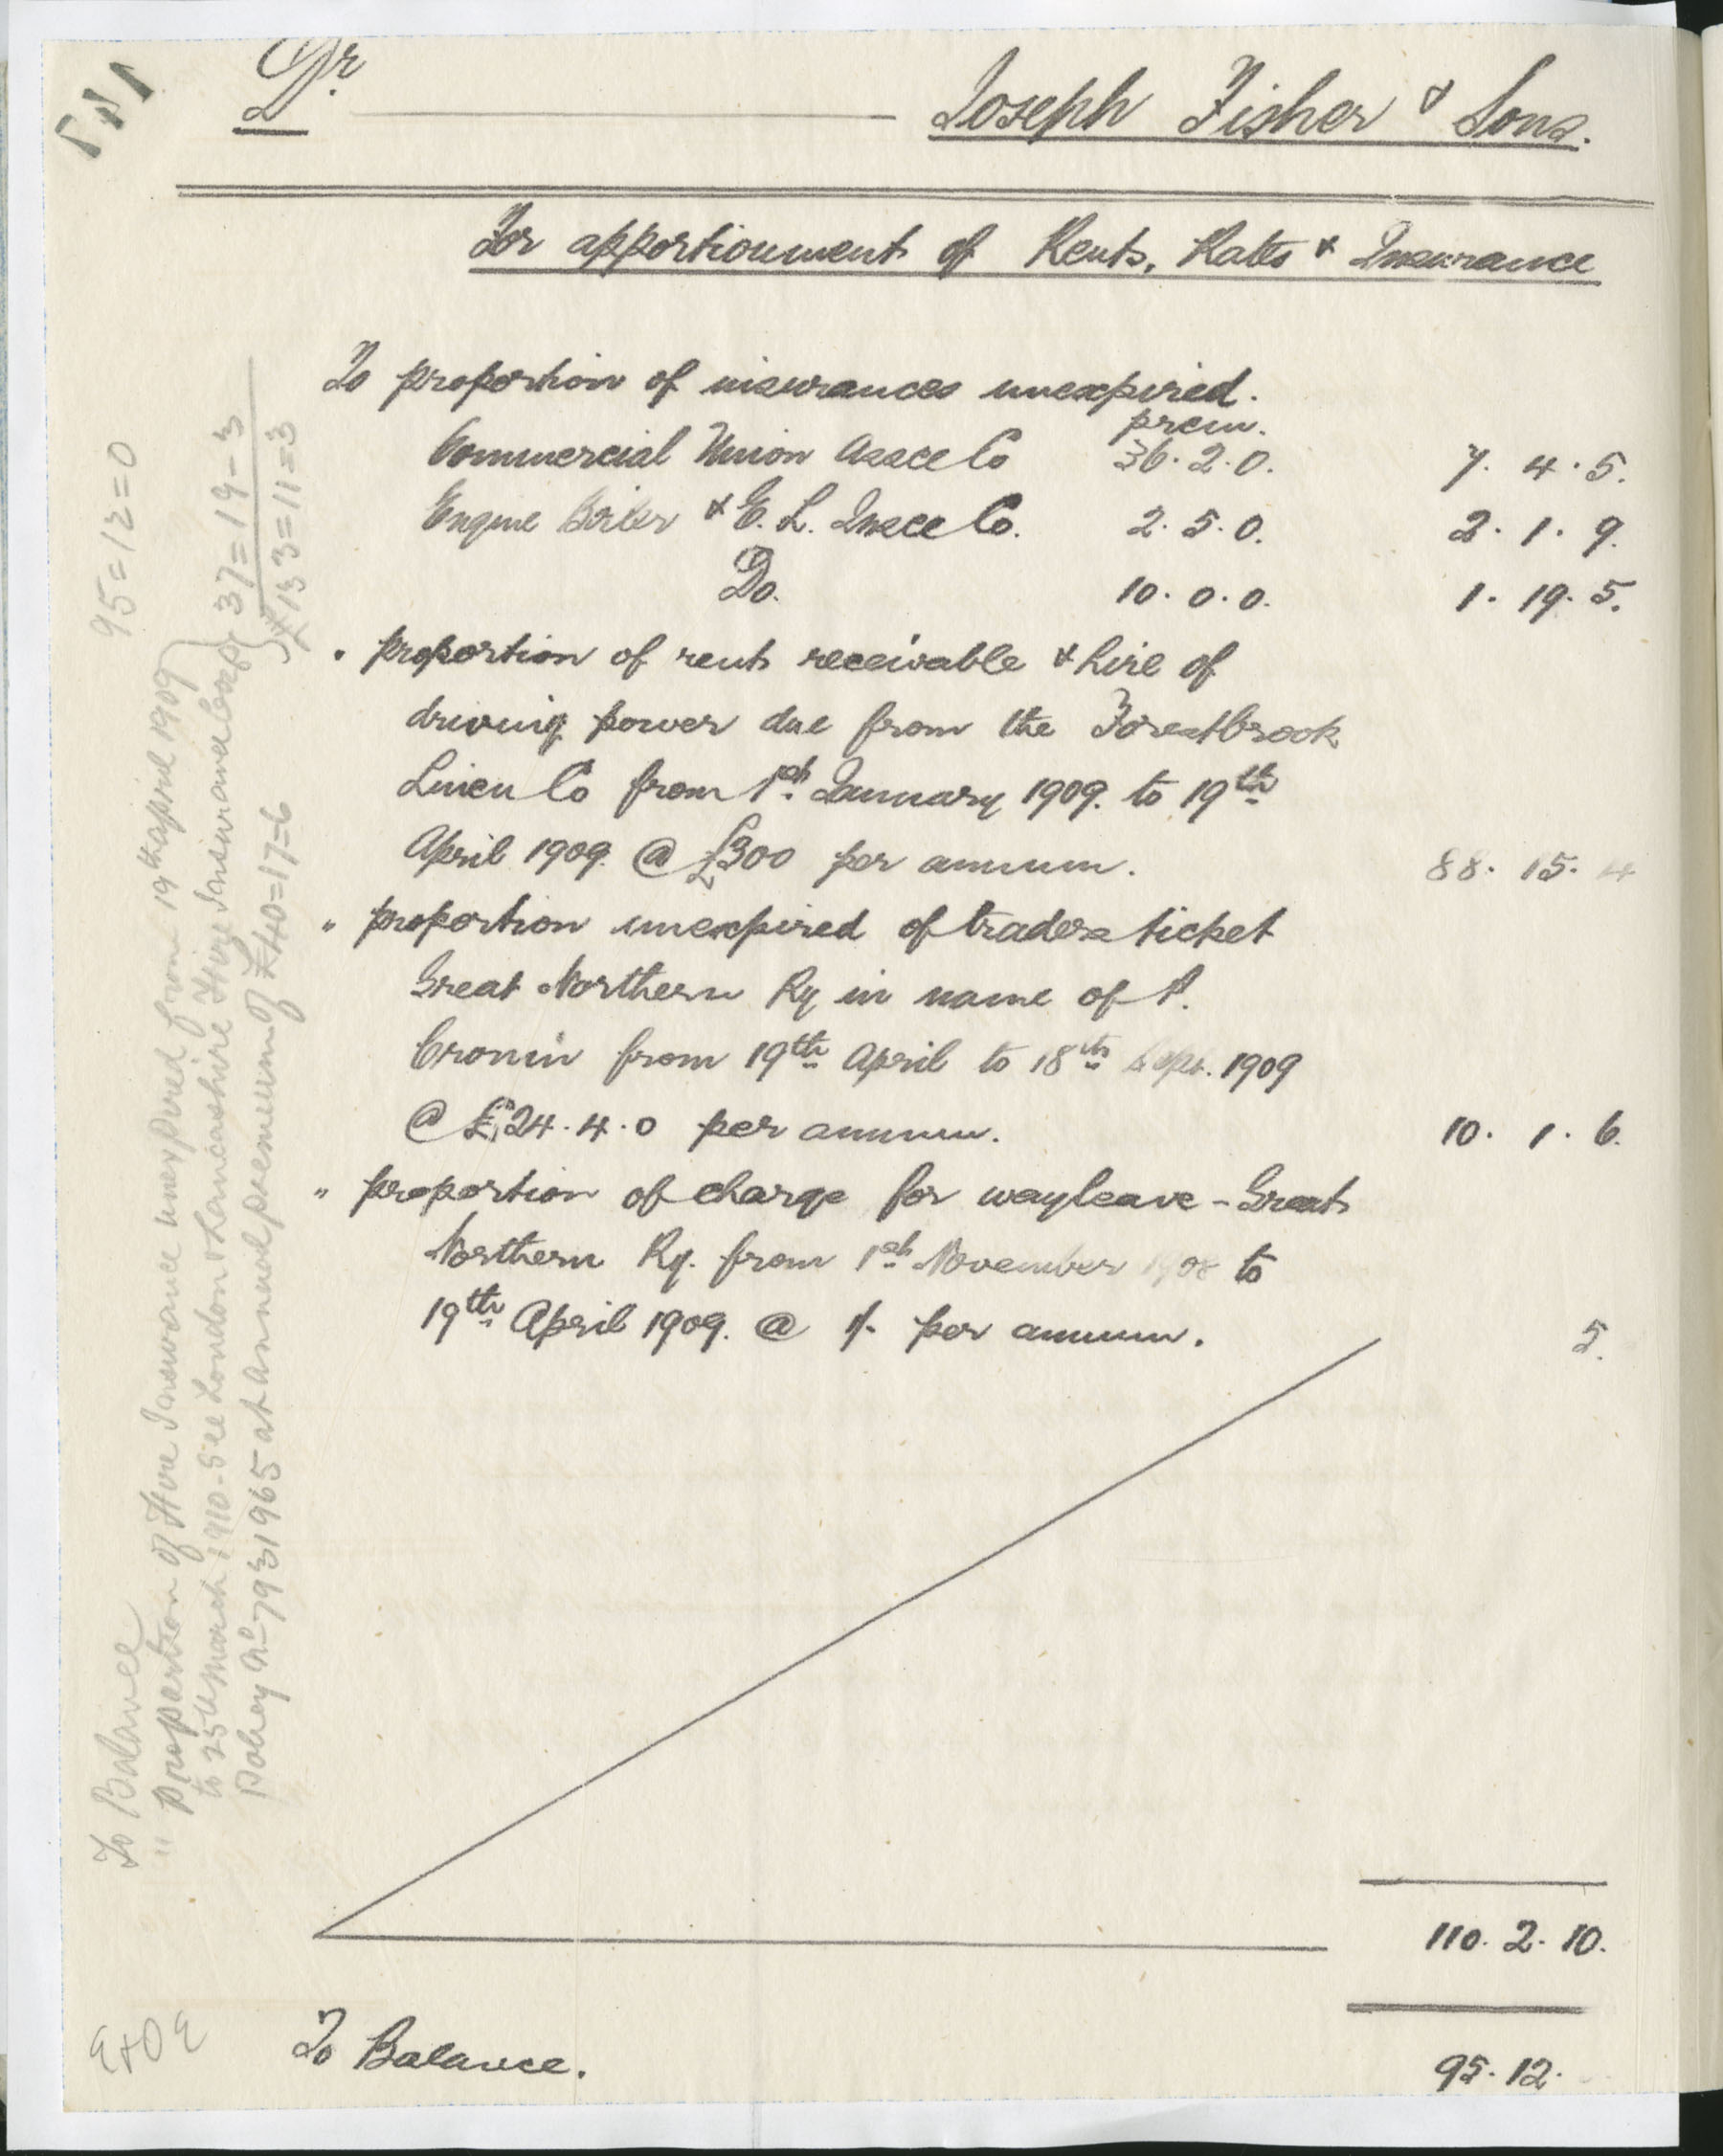 Dr. Joseph Fisher & Sons.
For apportionment of Rents, Rates & Insurance
To proportion of insurances unexpired.
prem.
Commercial Union Assce Co 36. 2. 0. 7. 4. 5.
Engine Boiler & E. L. Insce Co. 2. 5. 0. 2. 1. 9.
Do. 10. 0. 0. 1. 19. 5.
" proportion of rent receivable & hire of
driving power due from the Forestbrook
Linen Co from 1st January 1909. to 19th
April 1909. @ £300 per annum. 88. 15. 4
" proportion unexpired of traders ticket
Great Northern Ry in name of P.
Cronin from 19th April to 18th Sept. 1909
@ £24. 4. 0 per annum. 10. 1. 6.
" proportion of charge for wayleave - Great
Northern Ry. from 1st November 1908 to
19th April 1909. @ 1/- per annum. 5.
110. 2. 10.
To Balance. 95. 12.
E & O E
To Balance 95=12=0
" Proportion of Fire Insurance unexpired from 19th April 1909
to 25th March 1910 - See London & Lancashire Fire Insurance Coy 37=19-3
policy No 7931965 at annual premium of £40=17=6 £133=11=3